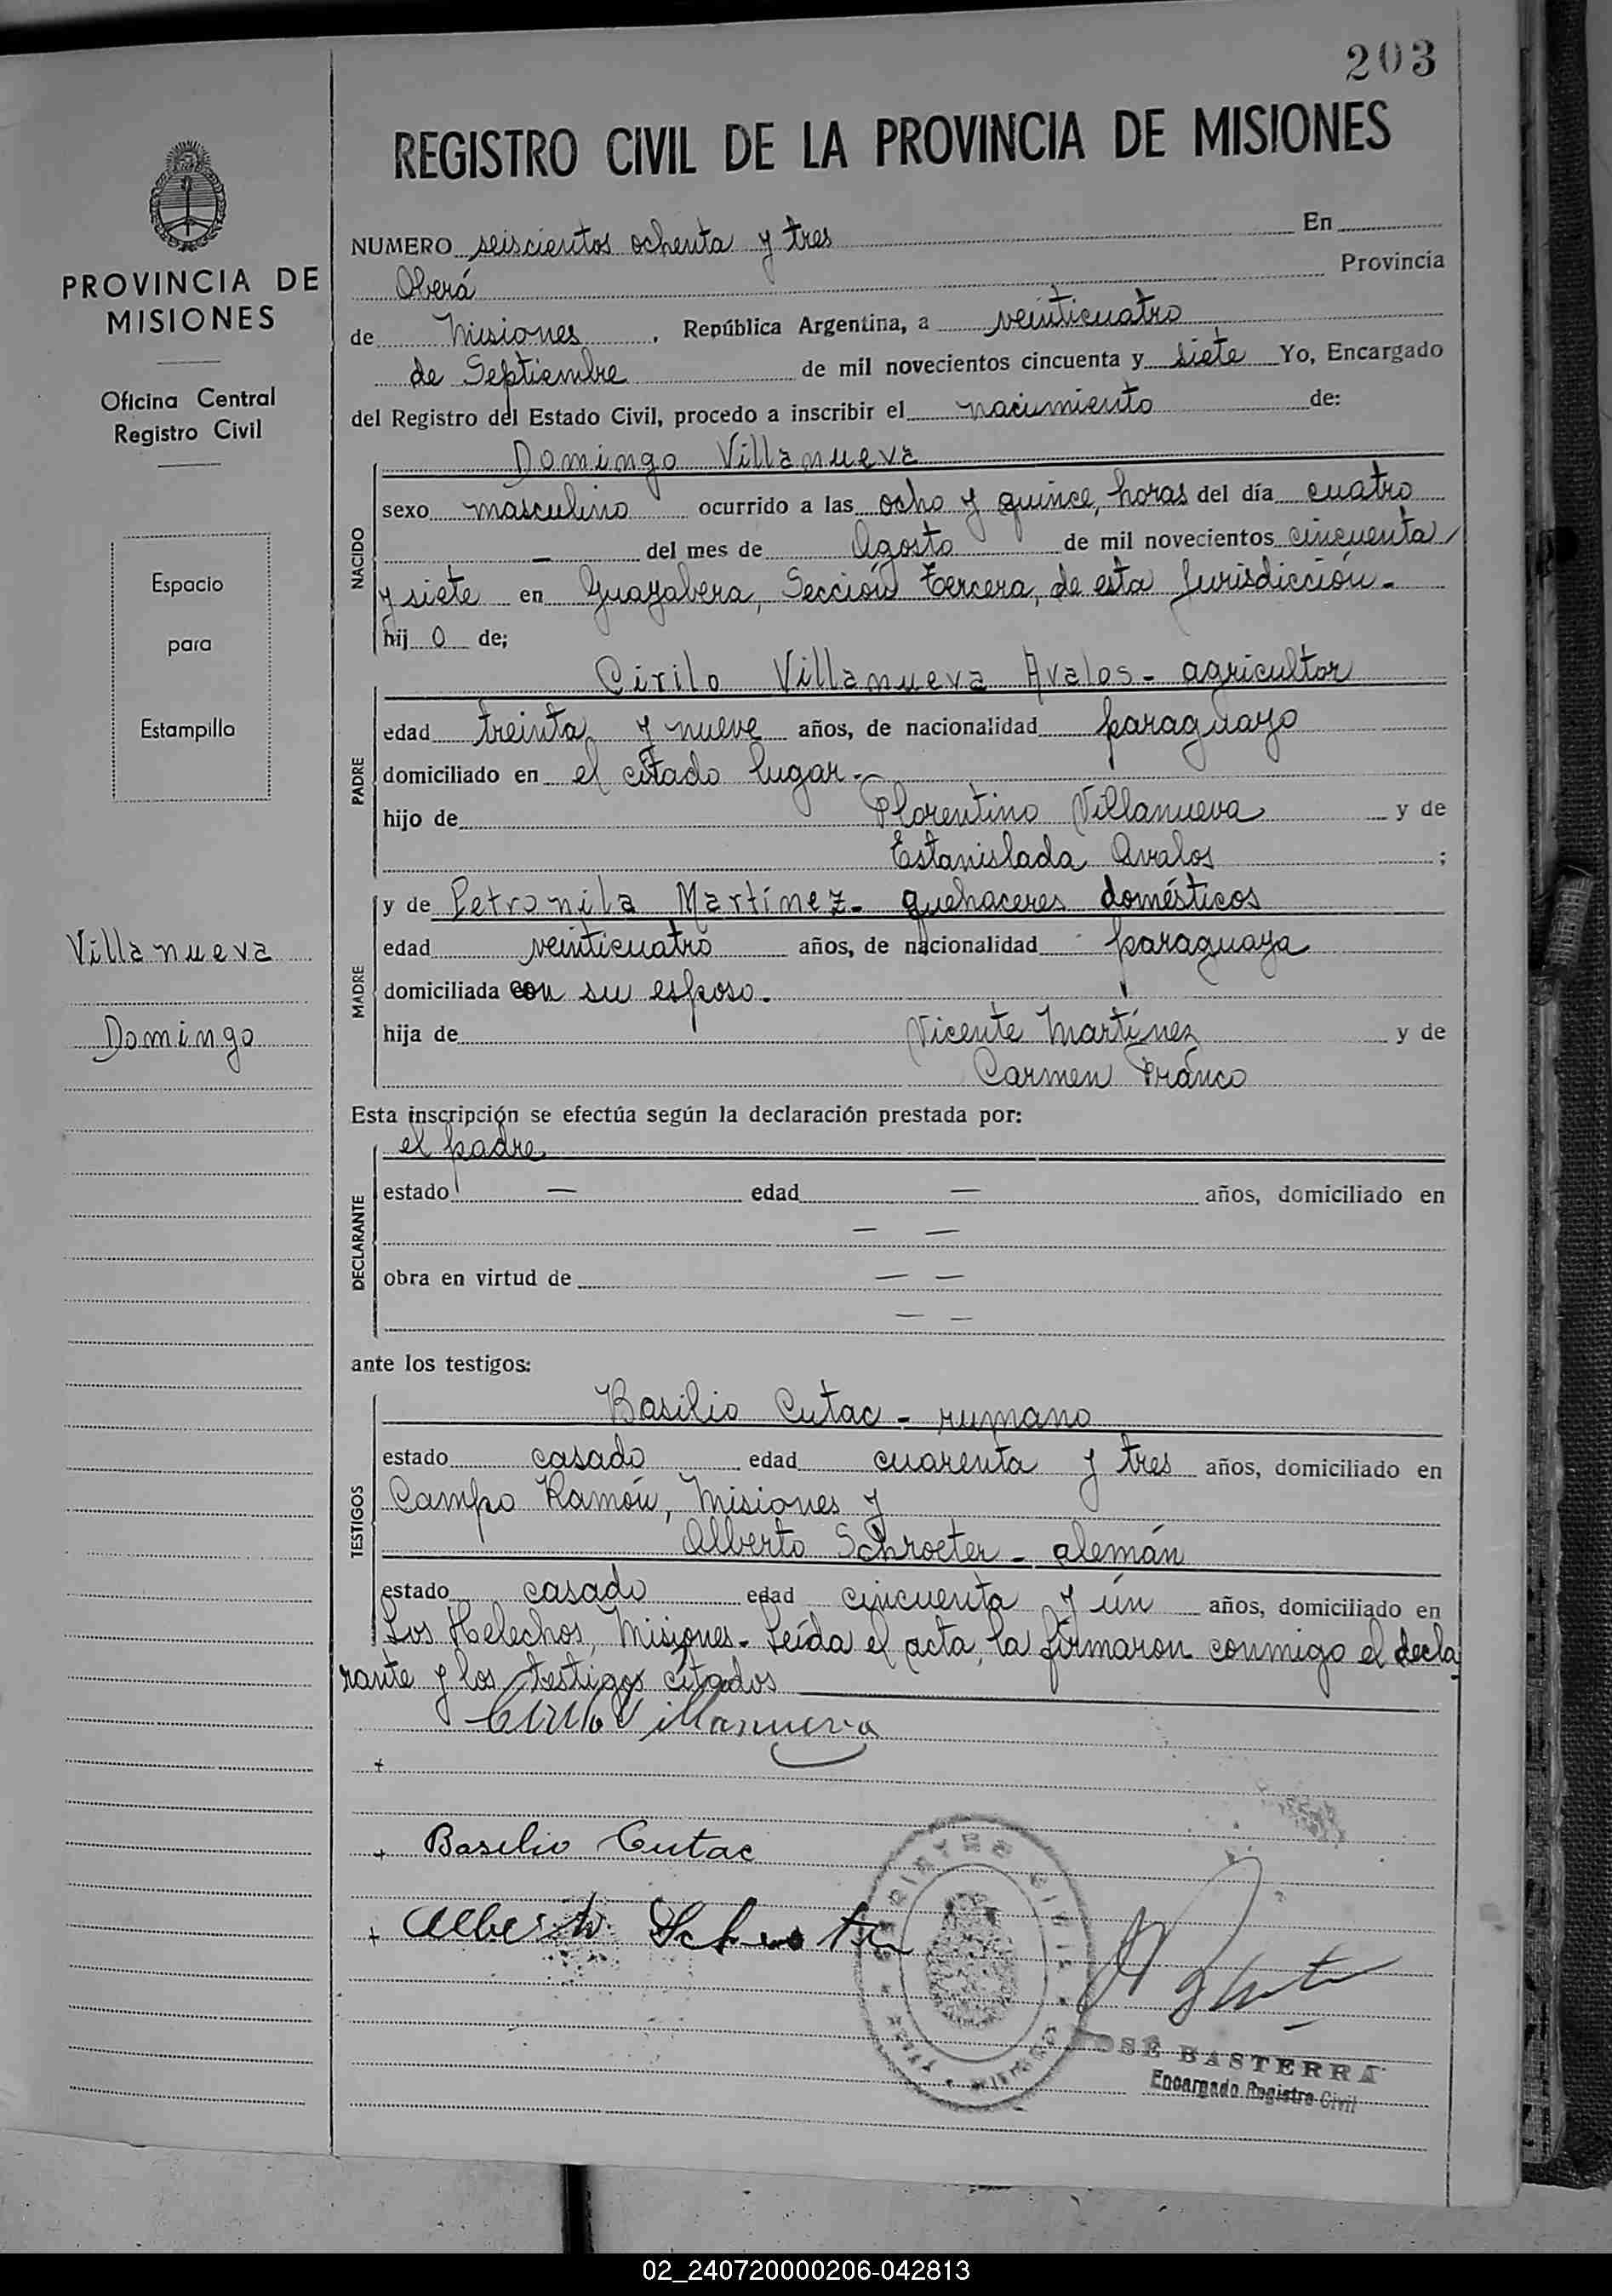 203
REGISTRO CIVIL DE LA PROVINCIA DE MISIONES
PROVINCIA DE
MISIONES
Oficina Central
Registro Civil
Espacio
para
Estampilla
Villanueva
Domingo
NUMERO seiscientos ochenta y tres En
Oberá Provincia
de Misiones, República Argentina, a veinticuatro
de Septiembre de mil novecientos cincuenta y siete Yo, Encargado
del Registro del Estado Civil, procedo a inscribir el nacimiento de:
NACIDO
Domingo Villanueva
sexo masculino ocurrido a las ocho y quince, horas del día cuatro
— del mes de Agosto de mil novecientos cincuenta
y siete en Guayabera, Sección tercera, de esta Jurisdicción.-
hij o de;
PADRE
Cirilo Villanueva Avalos - agricultor
edad treinta y nueve años, de nacionalidad paraguayo
domiciliado en el citado lugar.-
hijo de Florentino Villanueva y de
Estanislada Avalos ;
MADRE
y de Petronila Martínez - quehaceres domésticos
edad veinticuatro años, de nacionalidad paraguaya
domiciliada con su esposo.
hija de Vicente Martínez y de
Carmen Franco
Esta inscripción se efectúa según la declaración prestada por:
DECLARANTE
el padre
estado — edad — años, domiciliado en
— —
obra en virtud de — —
— —
ante los testigos:
TESTIGOS
Basilio Cutac - rumano
estado casado edad cuarenta y tres años, domiciliado en
Campo Ramón, Misiones y
Alberto Schroeter - alemán
estado casado edad cincuenta y ún años, domiciliado en
Los Helechos, Misiones.- Leída el acta, la firmaron conmigo el decla-
rante y los testigos citados
Cirilo Villanueva
+
+ Basilio Cutac
+ Alberto Schroeter
REGISTRO CIVIL
JOSÉ BASTERRA
Encargado Registro Civil
02_240720000206-042813